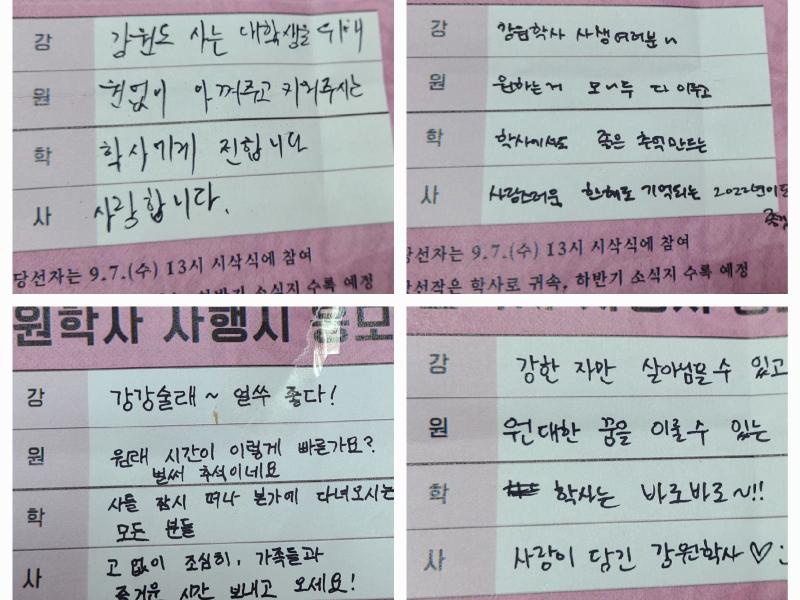 강 강원도 사는 대학생을 위해
원 헌없이 아껴주고 키워주시는
학 학사에게 전합니다
사 사랑합니다.
당선자는 9.7.(수) 13시 시삭식에 참여
하반기 소식지 수록 예정
강 강원학사 사생 여러분
원 원하는거 모~두 다 이루고
학 학사에서도 좋은 추억만드는
사 사랑스러운 한해로 기억되는 2022년이
당선자는 9.7.(수) 13시 시삭식에 참여
당선작은 학사로 귀속, 하반기 소식지 수록 예정
원학사 사행시 응모
강 강강술래~ 얼쑤 좋다!
원 원래 시간이 이렇게 빠른가요?
벌써 추석이네요
학 사들 잠시 떠나 본가에 다녀오시는
모든 분들
사 고 없이 조심히, 가족들과
즐거운 시간 보내고 오세요!
강 강한 자만 살아남을 수 있고
원 원대한 꿈을 이룰 수 있는
학 학사는 바로바로~!!
사 사랑이 담긴 강원학사♡